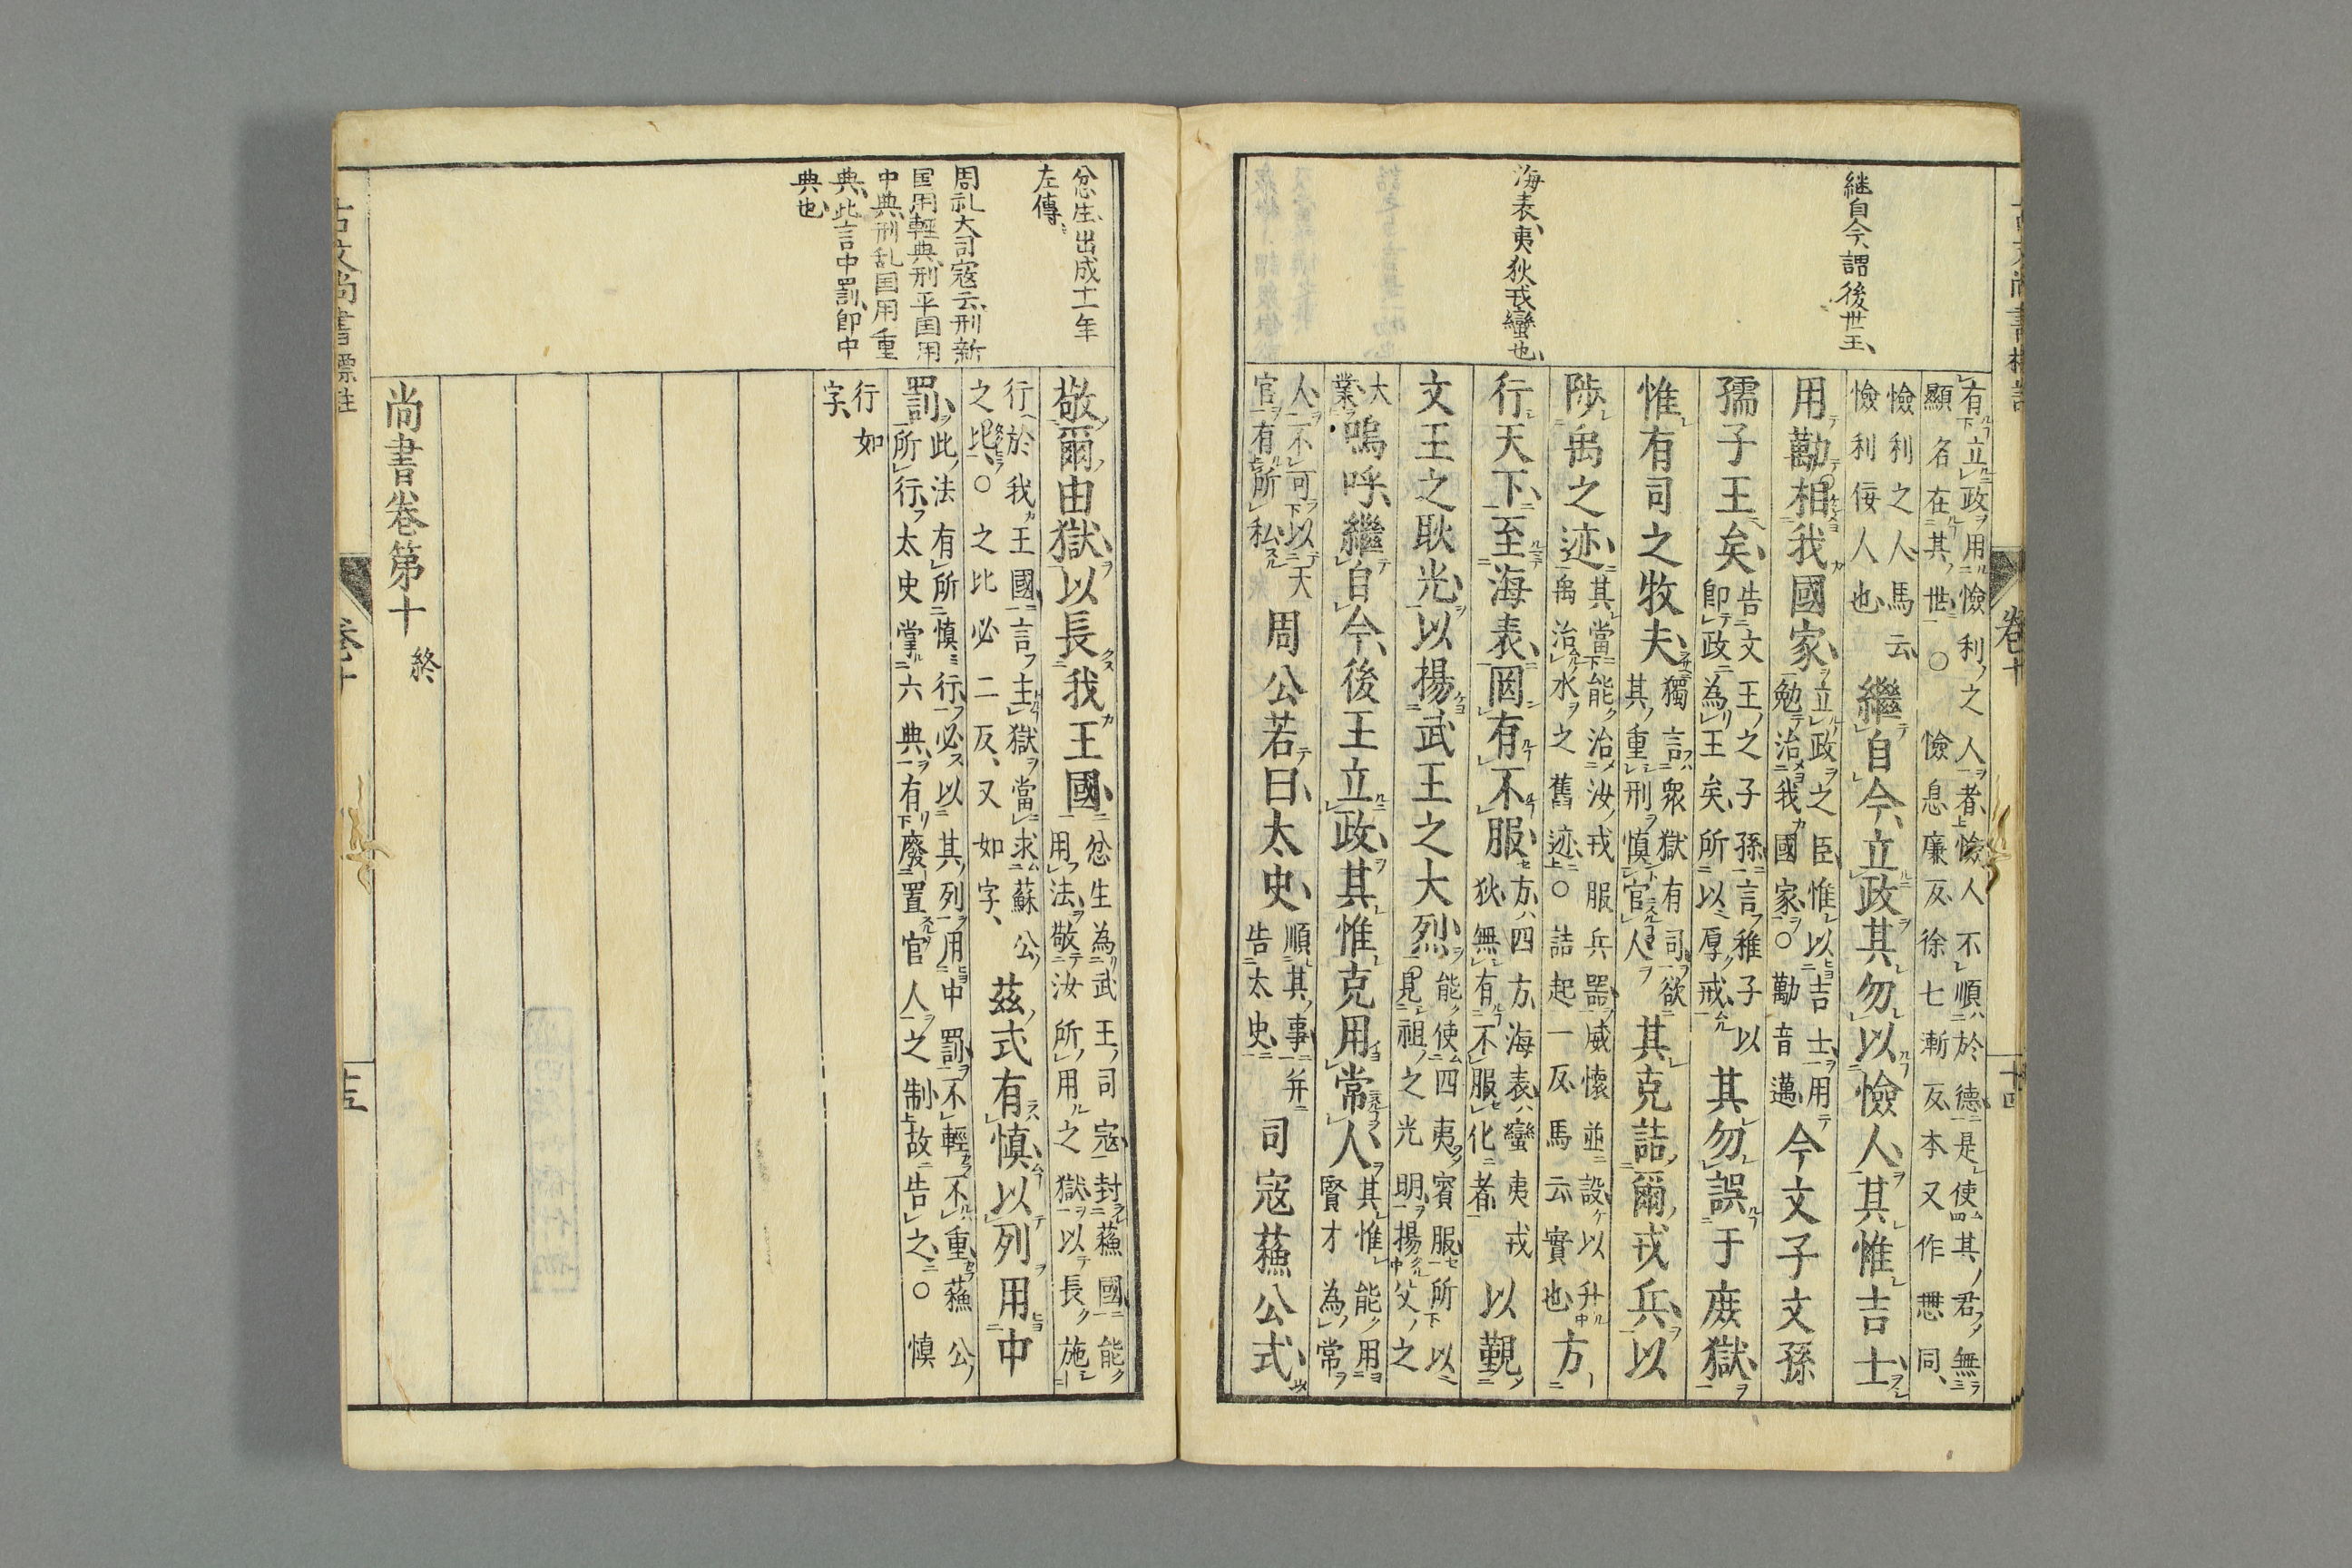 継自今謂後世王
海表夷狄戎蠻也
有立政用憸利之人者憸人不順於德是使其君無
顯名在其世○憸息廉反徐七漸反本又作悪同
憸利之人馬云
憸利佞人也
繼自今立政其勿以憸人其惟吉士
用勱相我國家
立政之臣惟以吉士用
勉治我國家○勱音邁
今文子文孫
孺子王矣
告文王之子孫言稚子以
即政為王矣所以厚戒
其勿誤于庶獄
惟有司之牧夫
獨言眾獄有司欲
其重刑慎官人
其克詰爾戎兵以
陟禹之迹
其當能治汝戎服兵器威懷並設以升
禹治水之舊迹○詰起一反馬云實也
方
行天下至海表罔有不服
方四方海表蠻夷戎
狄無有不服化者
以覲
文王之耿光以揚武王之大烈
能使四夷賓服所以
見祖之光明揚父之
大
業
嗚呼繼自今後王立政其惟克用常人
其惟能用
賢才為常
人不可以天
官有所私
周公若曰太史
順其事并
告太史
司寇蘓公式
忿生出成十一年
左傳
周礼大司寇云刑新
国用輕典刑平国用
中典刑乱国用重
典此言中罰即中
典也
敬爾由獄以長我王國
忿生為武王司寇封蘓國能
用法敬汝所用之獄以長施
行於我王國言主獄當求蘇公
之比○之比必二反又如字
茲式有慎以列用中
罰
此法有所慎行必以其列用中罰不輕不重蘓公
所行太史掌六典有廢置官人之制故告之○慎
行如
字
尚書卷第十
終